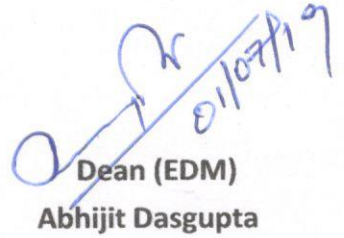 01/07/19
Dean (EDM)
Abhijit Dasgupta